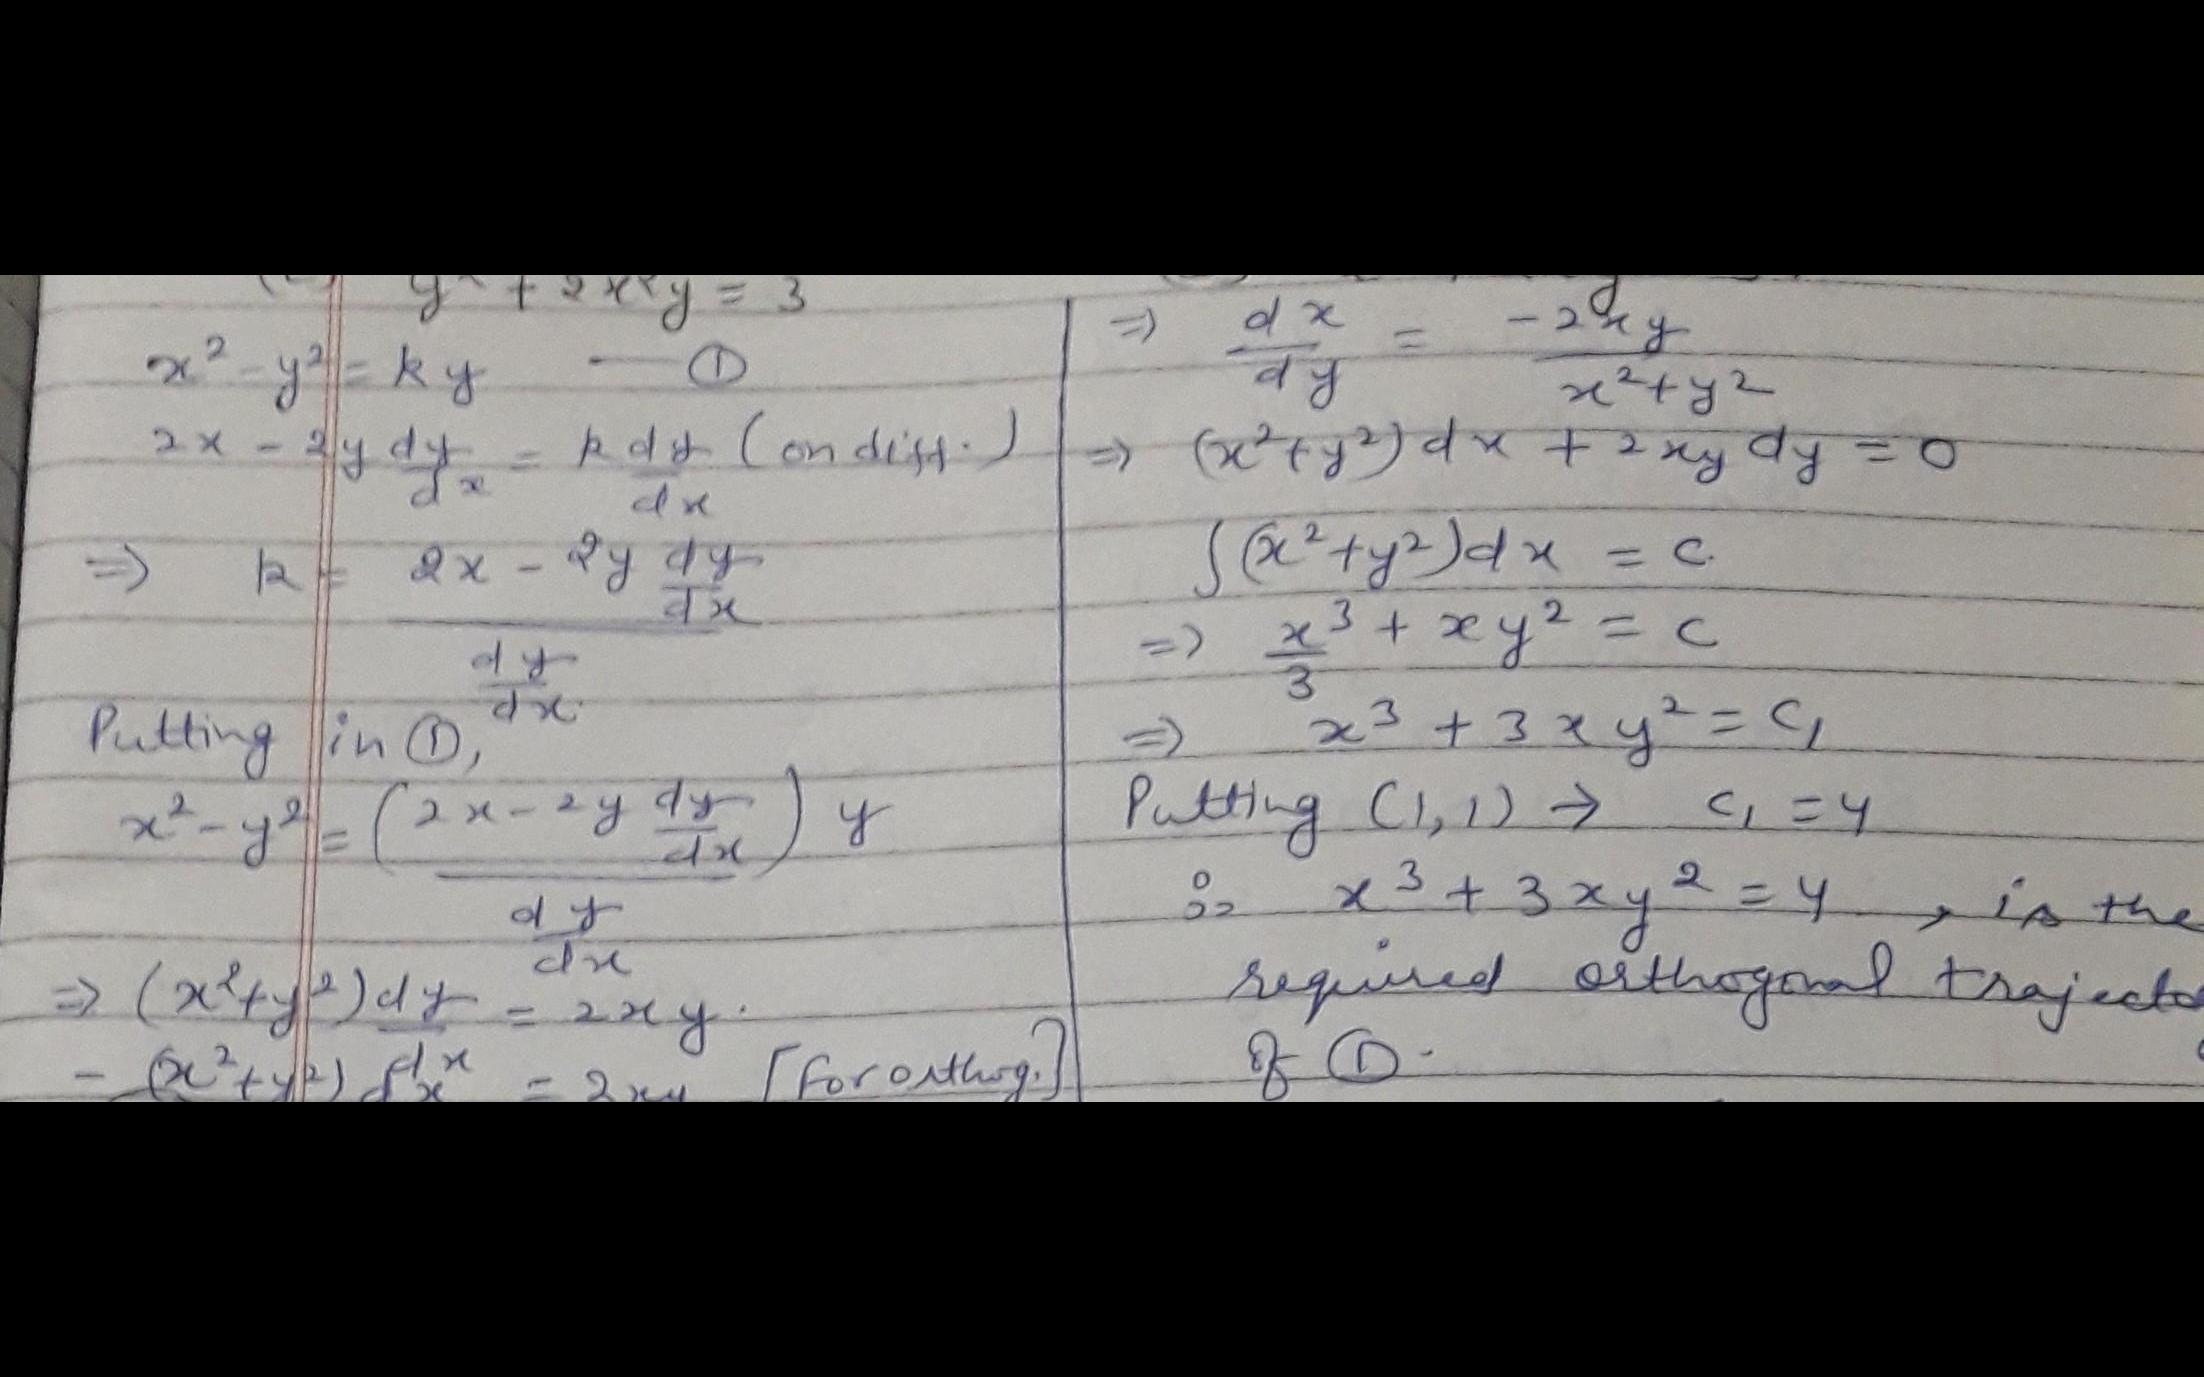 y² + 2x²y = 3
x² - y² = ky —①
2x - 2y dy/dx = k dy/dx (on diff.)
⇒ k = (2x - 2y dy/dx) / (dy/dx)
Putting in ①,
x² - y² = ((2x - 2y dy/dx) / (dy/dx)) y
⇒ (x² + y²) dy/dx = 2xy.
- (x² + y²) dx = 2xy [For orthog.]
⇒ dx/dy = -2xy / (x² + y²)
⇒ (x² + y²) dx + 2xy dy = 0
∫(x² + y²) dx = c.
⇒ x³/3 + xy² = c
⇒ x³ + 3xy² = c₁
Putting (1,1) → c₁ = 4
∴ x³ + 3xy² = 4, is the
required orthogonal trajecto
of ①.